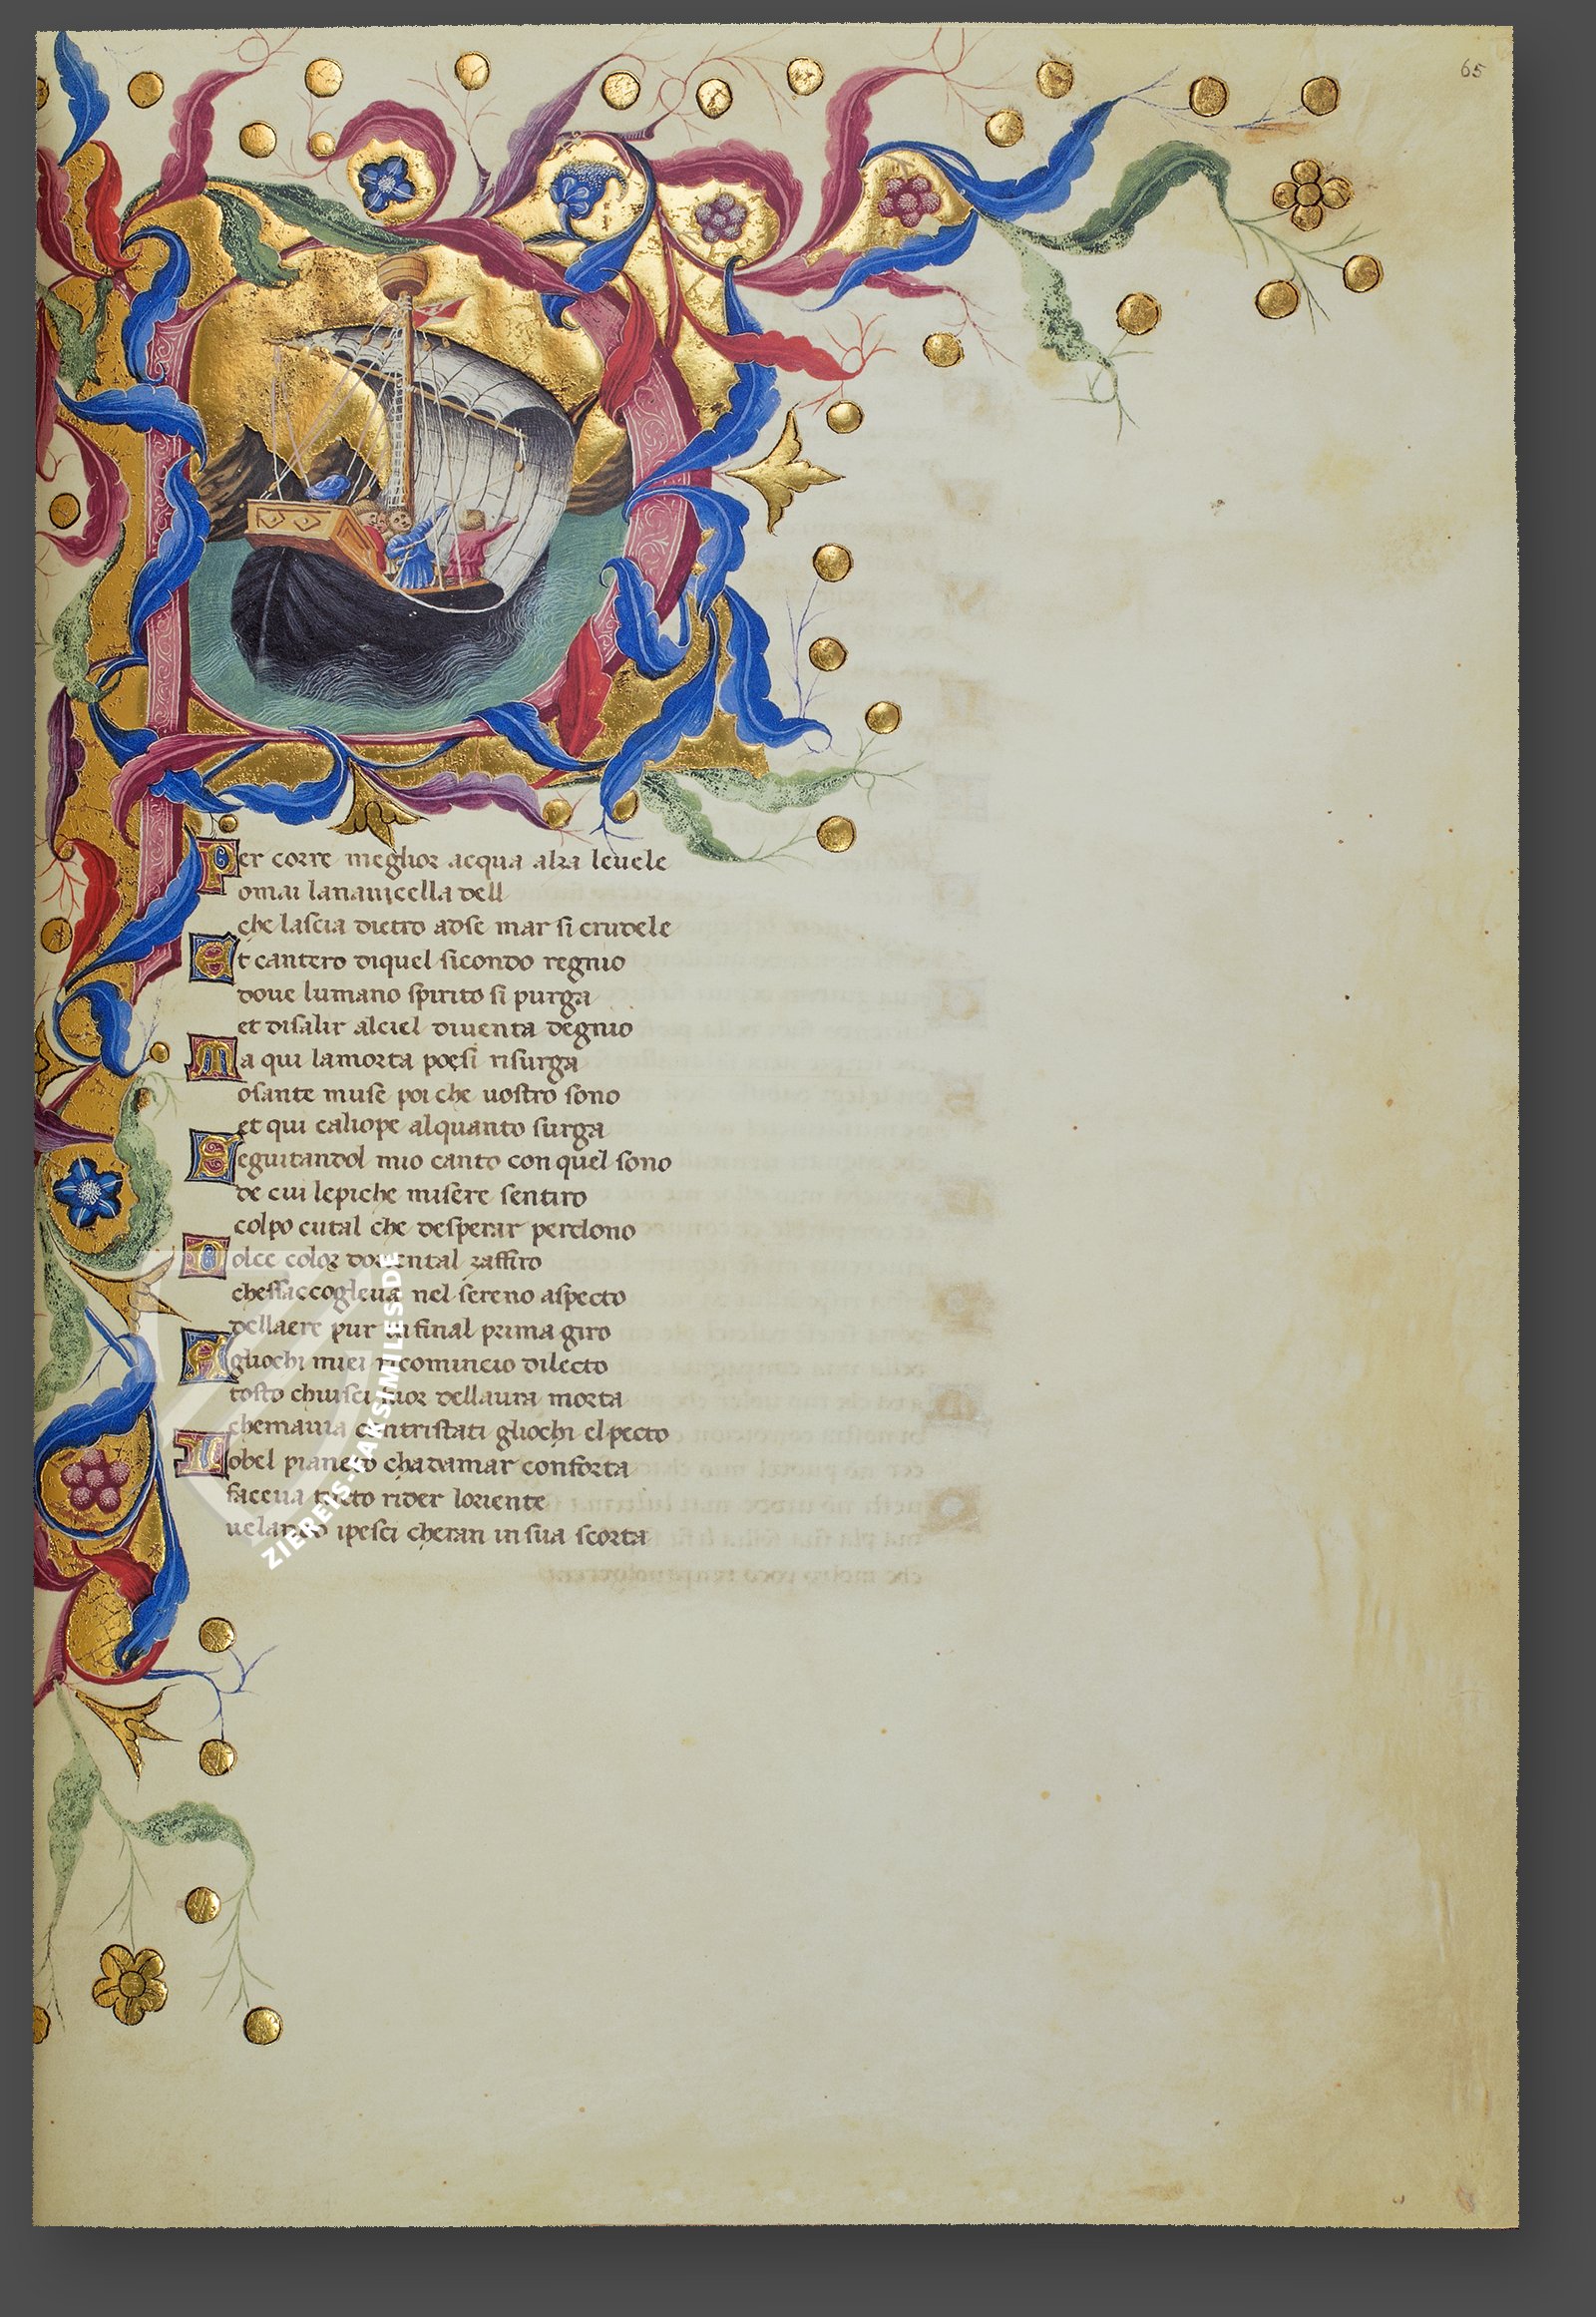 65
Per corre meglior acqua alza leuele
omai lanauicella dell
che lascia dietro adse mar si crudele
Et cantero diquel sicondo regnio
doue lumano spirito si purga
et disalir alciel diuenta degnio
Ma qui lamorta poesi risurga
osante muse poi che uostro sono
et qui caliope alquanto surga
Seguitandol mio canto con quel sono
de cui lepiche misere sentiro
colpo cutal che desperar perdono
Dolce color doriental zaffiro
chessaccoglieua nel sereno aspecto
dellaere pur infinal prima giro
Agliochi miei ricomincio dilecto
tosto chiusci fuor dellaura morta
chemauia contristati gliochi el pecto
Lobel pianeto chadamar conforta
faceua tucto rider loriente
uelando ipesci cheran in sua scorta
ZIEREIS-FAKSIMILES.DE